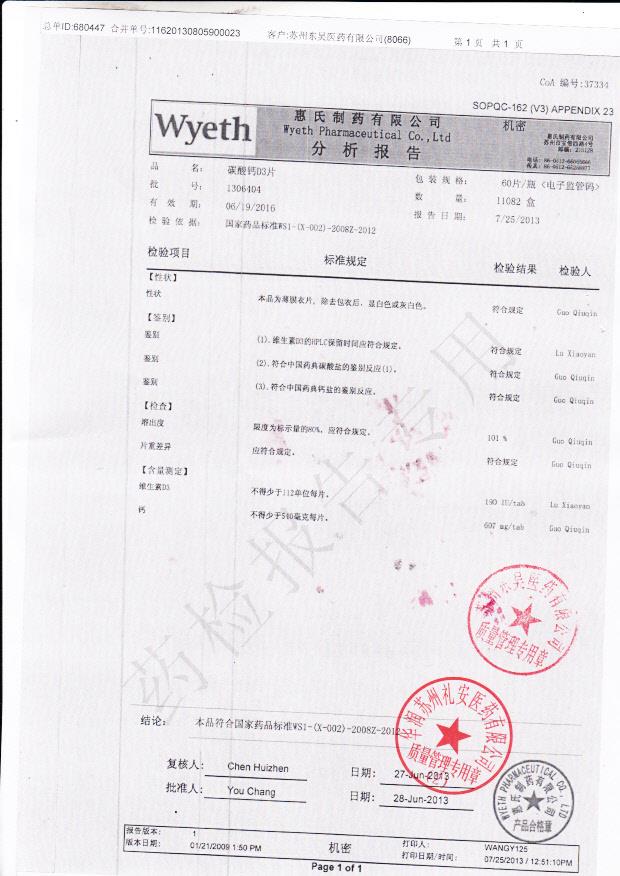 总单ID:680447 合并单号:11620130805900023 客户:苏州东吴医药有限公司(8066) 第 1 页 共 1 页
CoA 编号:37334
SOPQC-162 (V3) APPENDIX 23
Wyeth
惠氏制药有限公司
Wyeth Pharmaceutical Co.,Ltd
分析报告
机密
惠氏制药有限公司
品 名: 碳酸钙D3片 包装规格: 60片/瓶 <电子监管码>
批 号: 1306404 数 量: 11082 盒
有 效 期: 06/19/2016 报告日期: 7/25/2013
检验依据: 国家药品标准WS1-(X-002)-2008Z-2012
检验项目 标准规定 检验结果 检验人
【性状】
性状 本品为薄膜衣片，除去包衣后，显白色或灰白色。 符合规定 Guo Qiuqin
【鉴别】
鉴别 (1).维生素D3的HPLC保留时间应符合规定。 符合规定 Lu Xiaoyan
鉴别 (2).符合中国药典碳酸盐的鉴别反应(1)。 符合规定 Guo Qiuqin
鉴别 (3).符合中国药典钙盐的鉴别反应。 符合规定 Guo Qiuqin
【检查】
溶出度 限度为标示量的80%，应符合规定。 101 % Guo Qiuqin
片重差异 应符合规定。 符合规定 Guo Qiuqin
【含量测定】
维生素D3 不得少于112单位每片。 190 IU/tab Lu Xiaoyan
钙 不得少于540毫克每片。 607 mg/tab Guo Qiuqin
药检报告专用
苏州东吴医药有限公司
质量管理专用章
结论: 本品符合国家药品标准WS1-(X-002)-2008Z-2012
华润苏州礼安医药有限公司
质量管理专用章
复核人: Chen Huizhen 日期: 27-Jun-2013
批准人: You Chang 日期: 28-Jun-2013
WYETH PHARMACEUTICAL CO., LTD
惠氏制药有限公司
产品合格章
报告版本: 1 打印人: WANGY125
版本日期: 01/21/2009 1:50 PM 机密 打印日期/时间: 07/25/2013 / 12:51:10PM
Page 1 of 1